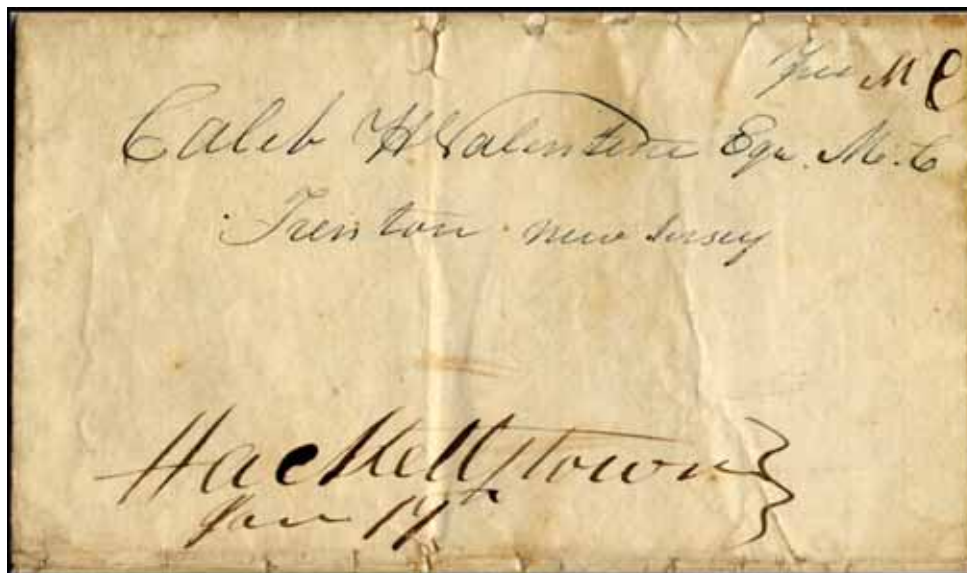 Free M C
Caleb H Valentine Esqr. M. C
Trenton New Jersey
Hackettstown
Jan 17th